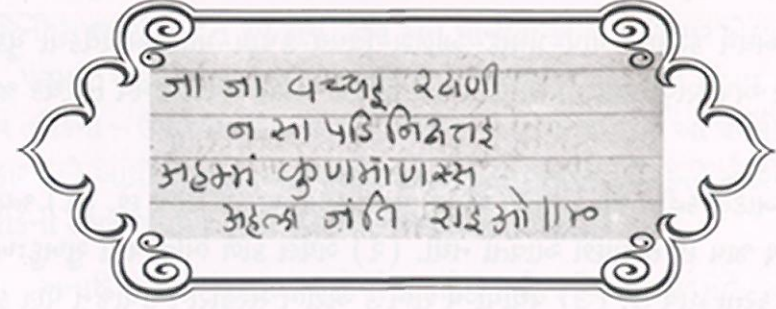 जा जा वच्चई रयणी
न सा पडि नियत्तई
अहम्मं कुणमाणस्स
अहला जंति राइओ ॥